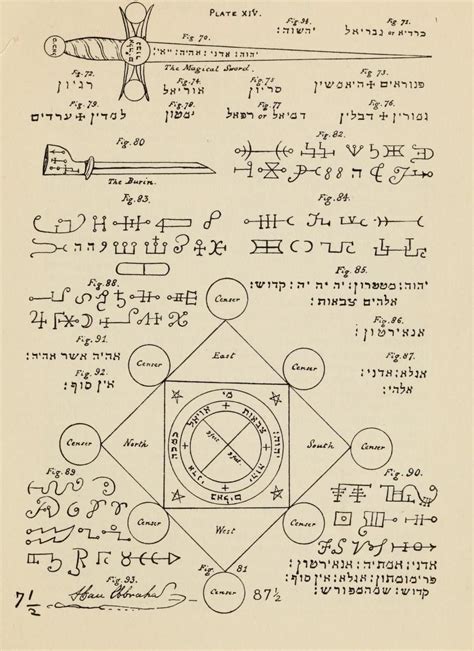 PLATE XIV.
Fig. 70. Fig. 94. Fig. 71.
יהשוה: כרדיא or גבריאל
יהוה: אדני: אהיה: ייאי:
The Magical Sword.
Fig. 72. Fig. 74. Fig. 75 Fig. 73.
רגיון אוריאל סריון פנוראים + היאמשין
Fig. 79. Fig. 78. Fig. 77 Fig. 76.
למדין + ערדים נמטון דמיאל or רפאל גמורין + דבלין
Fig. 80 Fig. 82.
The Burin.
Fig. 83. Fig. 84.
Fig. 88. Fig. 85.
Censer
יהוה: מטטרון: יה יה יה: קדוש:
אלהים צבאות:
Fig. 86.
אנאירטון:
Fig. 91.
אהיה אשר אהיה:
Censer East Censer
Fig. 92. Fig. 87.
אין סוף: אנלא: אדני:
אלהי:
Censer North South Censer
Fig. 89 Fig. 90.
Censer West Censer
Fig. 81
Censer
אדני: אמתיה: אנאירטון:
פרימומתון: אנלא: אין סוף:
קדוש: שמהמפורש:
Fig. 93.
7½ 87½